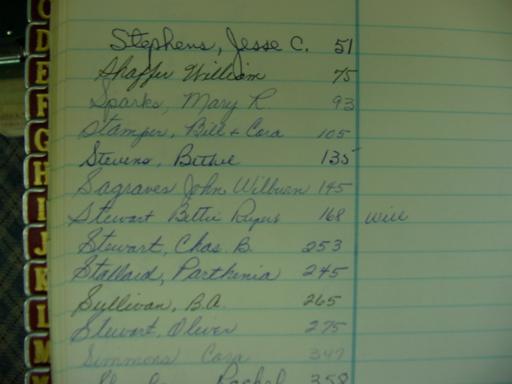 C
D
E
F
G
H
I
J
K
L
M
Stephens, Jesse C. 51
Shaffer William 75
Sparks, Mary R 93
Stamper, Bill & Cora 105
Stevens, Bethie 135
Sagraves John Wilburn 145
Stewart Bettie Rigus 168 will
Stewart, Chas. B. 253
Stallard, Parthinia 245
Sullivan, B.A. 265
Stewart, Oliver 275
Simmons Cora 347
Rachel 358